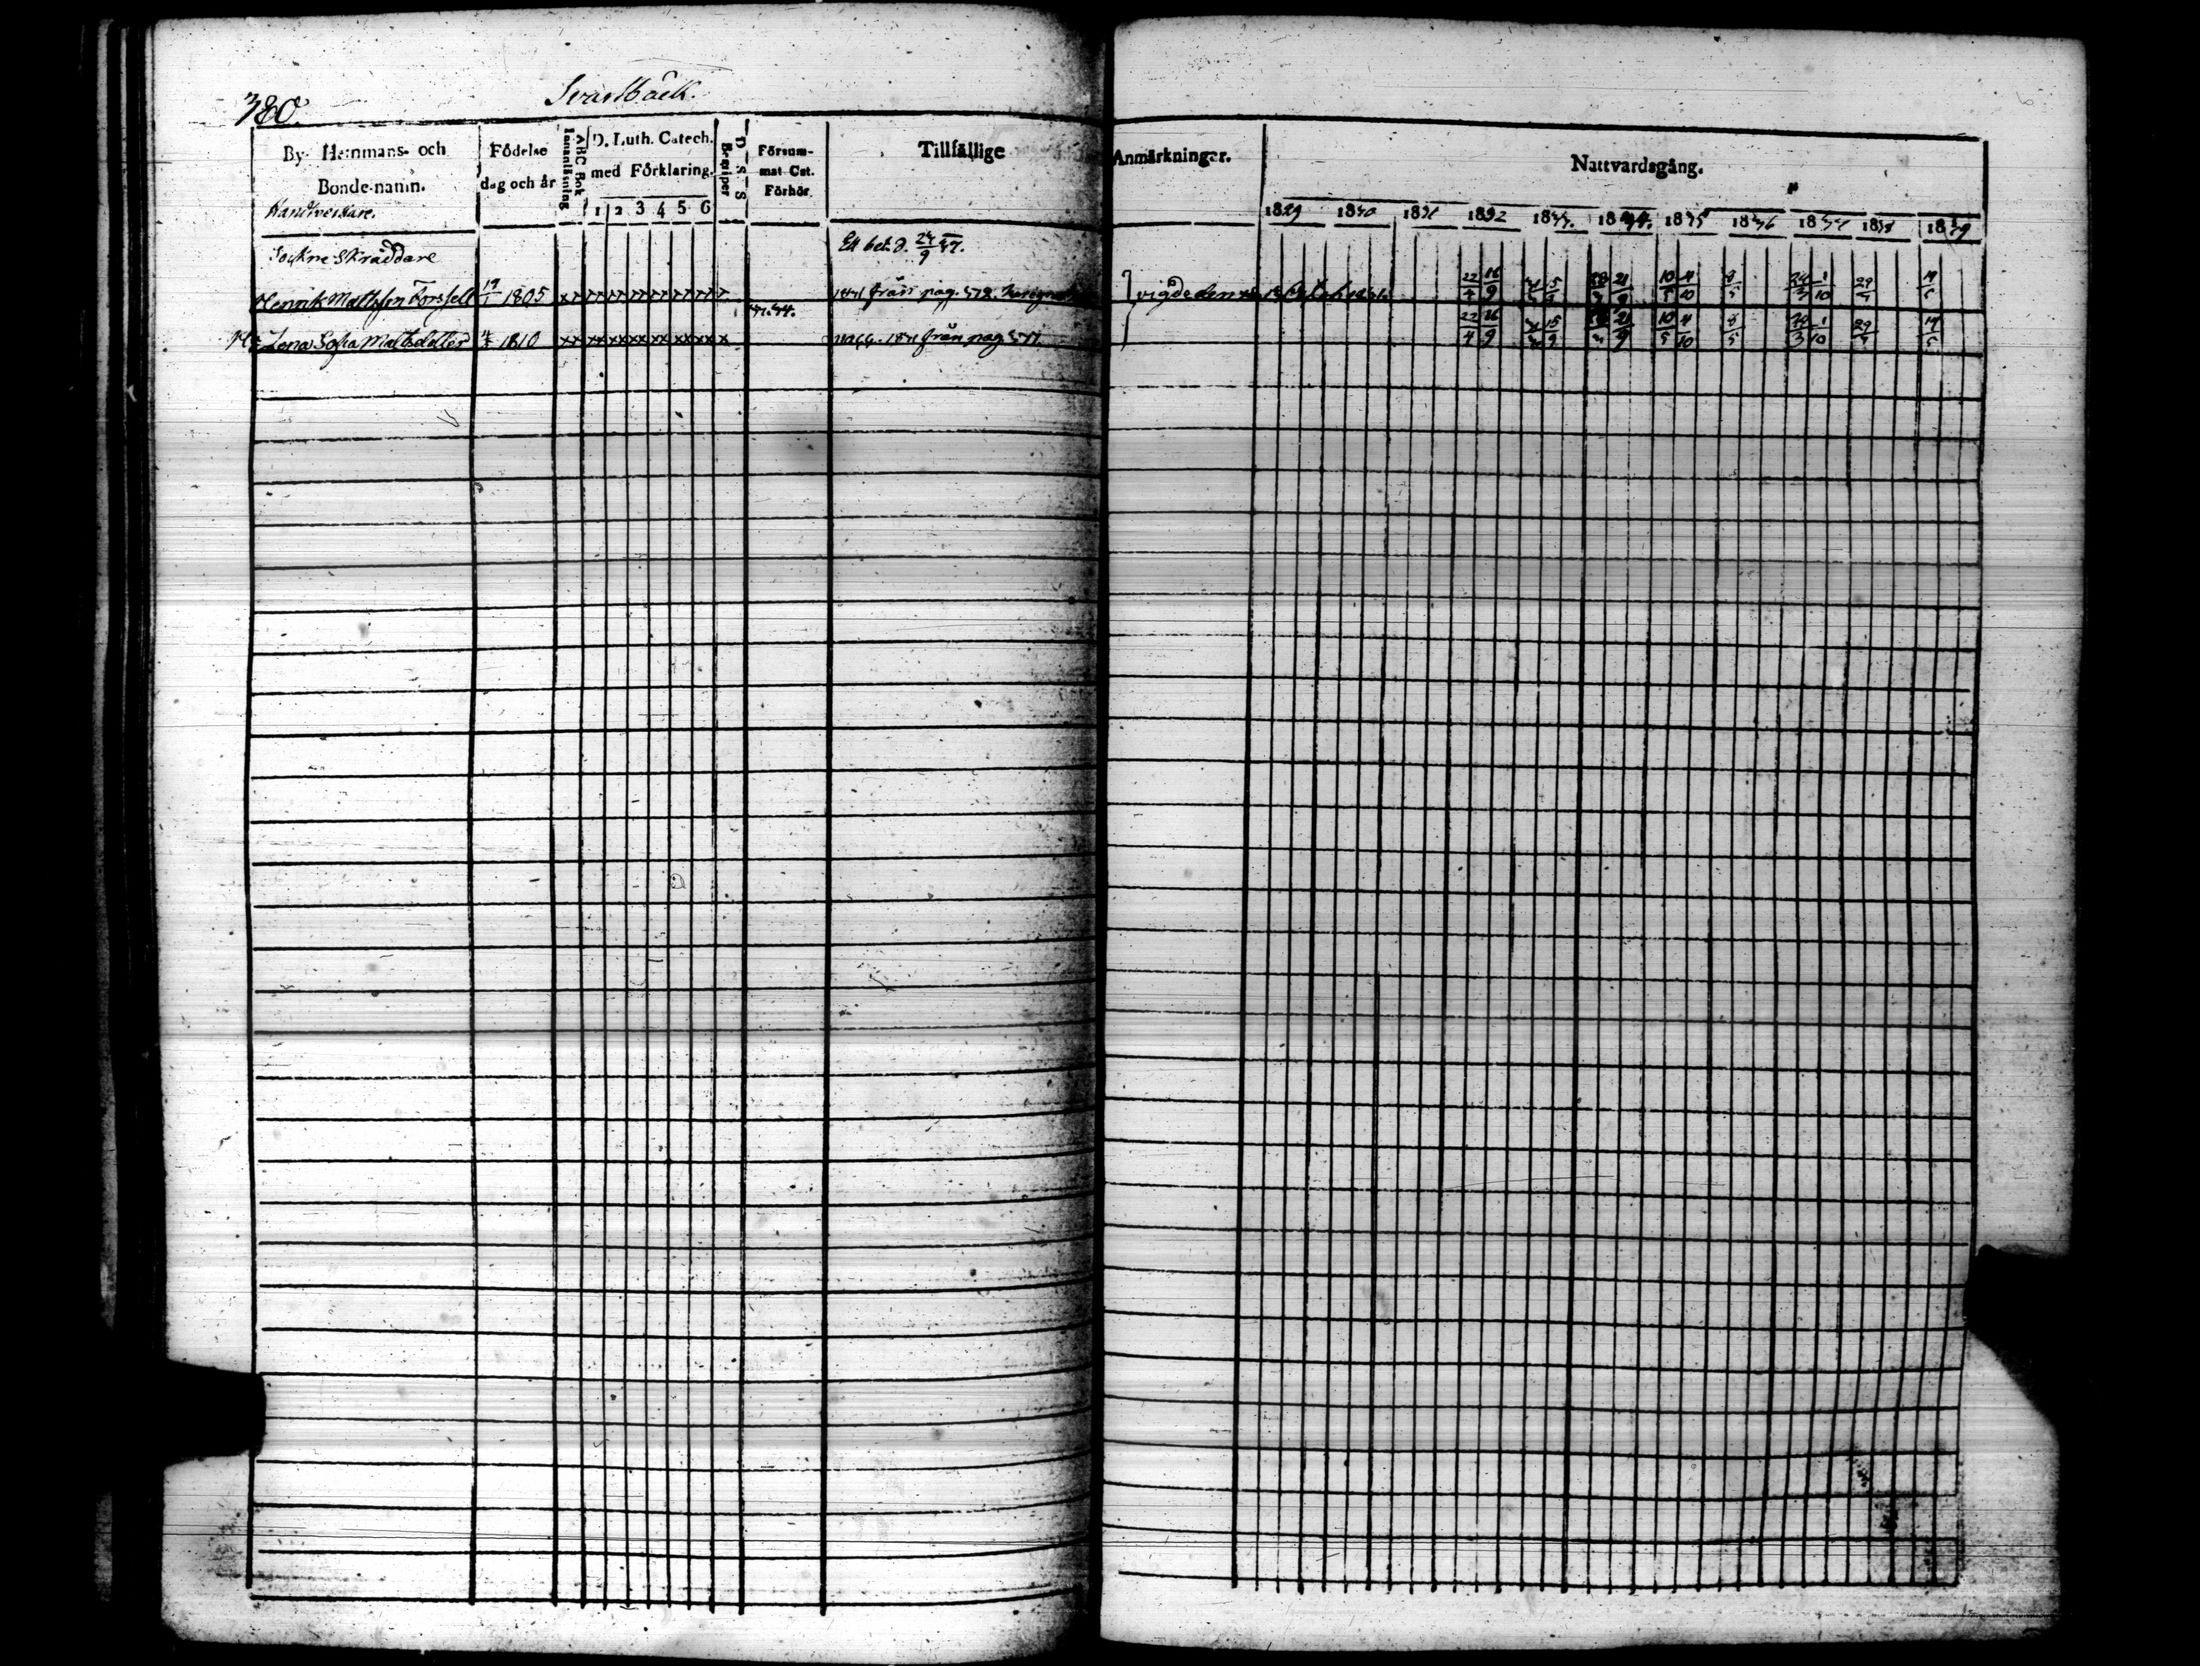 380.
Svartbäck.
By- Hemmans- och Bonde-namn.
Handtverkare.
Födelse dag och år
Innanläsning
ABC Bok
D. Luth. Catech. med Förklaring.
1 2 3 4 5 6
Begriper
D-S-S
Försummat Cat. Förhör
Tillfällige Anmärkningar.
Nattvardsgång.
1829 1830 1831 1832 1833. 1834. 1835 1836 1837 1838 1839
Sockne Skräddare
Ett bet. d. 24/9 37.
Henrik Mattsson Forssell 17/1 1805
från pag. 372.
vigde den
22/4 16/9 15/9 21/9 10/5 4/10 8/5 24/3 1/10 29/4 19/5
37.34.
H: Lena Sofia Mattsdotter 4/4 1810
från pag 371.
22/4 16/9 15/9 21/9 10/5 4/10 8/5 24/3 1/10 29/4 19/5